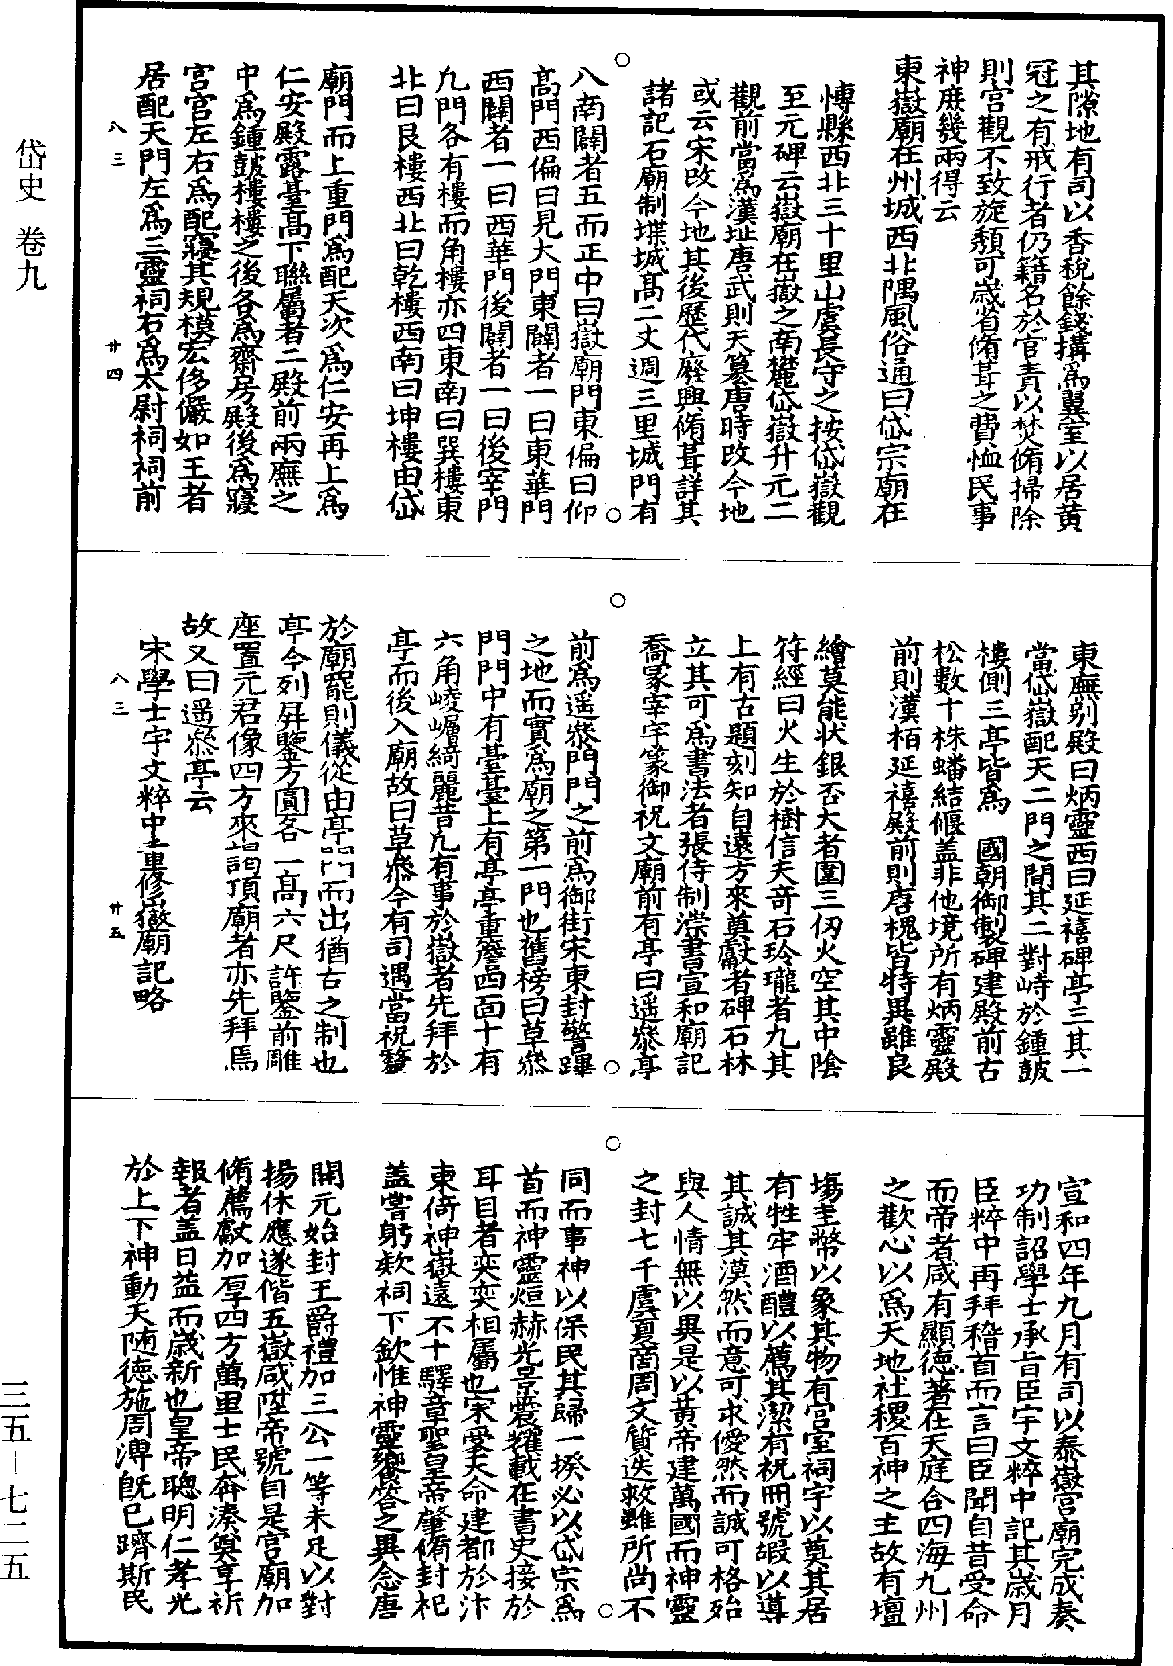 岱史 卷九
其隙地有司以香稅餘錢搆為翼室以居黃
冠之有戒行者仍籍名於官責以焚脩掃除
則宮觀不致旋頽可歲省脩葺之費恤民事
神庶幾兩得云
東嶽廟在州城西北隅風俗通曰岱宗廟在
博縣西北三十里山虞長守之按岱嶽觀
至元碑云嶽廟在嶽之南麓岱嶽升元二
觀前當為漢址唐武則天篡唐時改今地
或云宋改今地其後歷代廢興脩葺詳其
諸記石廟制堞城高二丈週三里城門有
八南闢者五而正中曰嶽廟門東偏曰仰
高門西偏曰見大門東闢者一曰東華門
西闢者一曰西華門後闢者一曰後宰門
九門各有樓而角樓亦四東南曰巽樓東
北曰艮樓西北曰乾樓西南曰坤樓由岱
廟門而上重門為配天次為仁安再上為
仁安殿露臺高下聯屬者二殿前兩廡之
中為鍾鼓樓樓之後各為齋房殿後為寢
宮宮左右為配寢其規模宏侈儼如王者
居配天門左為三靈祠右為太尉祠祠前
八三
廿四
東廡别殿曰炳靈西曰延禧碑亭三其一
當岱嶽配天二門之間其二對峙於鍾鼓
樓側三亭皆為 國朝御製碑建殿前古
松數十株蟠結偃盖非他境所有炳靈殿
前則漢栢延禧殿前則唐槐皆特異雖良
繪莫能狀銀杏大者圍三仞火空其中陰
符經曰火生於樹信夫奇石玲瓏者九其
上有古題刻知自遠方來奠獻者碑石林
立其可為書法者張侍制漴書宣和廟記
喬冢宰宇篆御祝文廟前有亭曰遥叅亭
前為遥叅門門之前為御街宋東封警蹕
之地而實為廟之第一門也舊榜曰草叅
門門中有臺臺上有亭亭重簷四面十有
六角崚嶒綺麗昔凡有事於嶽者先拜於
亭而後入廟故曰草叅今有司遇當祝釐
於廟罷則儀從由亭門而出猶古之制也
亭今列屛鑒方圓各一高六尺許鑒前雕
座置元君像四方來謁頂廟者亦先拜焉
故又曰遥叅亭云
宋學士宇文粹中重修嶽廟記略
八三
廿五
宣和四年九月有司以泰嶽宫廟完成奏
功制詔學士承旨臣宇文粹中記其歲月
臣粹中再拜稽首而言曰臣聞自昔受命
而帝者咸有顯德著在天庭合四海九州
之歡心以為天地社稷百神之主故有壇
塲圭幣以象其物有宫室祠宇以奠其居
有牲牢酒醴以薦其潔有祝冊號嘏以導
其誠其漠然而意可求僾然而誠可格殆
與人情無以異是以黃帝建萬國而神靈
之封七千虞夏商周文質迭救雖所尚不
同而事神以保民其歸一揆必以岱宗為
首而神靈烜赫光景震耀載在書史接於
耳目者奕奕相屬也宋受天命建都於汴
東倚神嶽遠不十驛章聖皇帝肇脩封祀
盖嘗躬欵祠下欽惟神靈饗答之異念唐
開元始封王爵禮加三公一等未足以對
揚休應遂偕五嶽咸陞帝號自是宫廟加
脩薦獻加厚四方萬里士民奔湊奠享祈
報者盖日益而歲新也皇帝聰明仁孝光
於上下神動天随德施周溥旣已躋斯民
三五－七二五